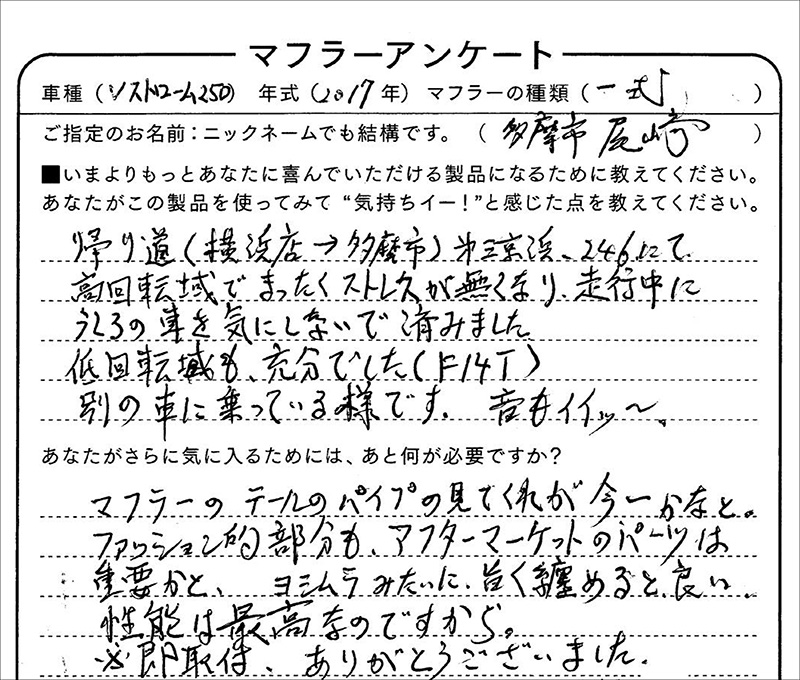 マフラーアンケート
車種（Vストローム250） 年式（2017年） マフラーの種類（一式）
ご指定のお名前：ニックネームでも結構です。（多摩市 尾崎）
■いまよりもっとあなたに喜んでいただける製品になるために教えてください。
あなたがこの製品を使ってみて“気持ちイー！”と感じた点を教えてください。
帰り道（横浜店→多摩市）第三京浜、246にて
高回転域でまったくストレスが無くなり、走行中に
うしろの車を気にしないで済みました
低回転域も、充分でした（F14T）
別の車に乗っている様です。 音もイイッ〜。
あなたがさらに気に入るためには、あと何が必要ですか？
マフラーのテールのパイプの見てくれが今一かなと。
ファッション的部分も、アフターマーケットのパーツは
重要かと、 ヨシムラみたいに、旨く纏めると良い。
性能は最高なのですから。
※即取付、ありがとうございました。